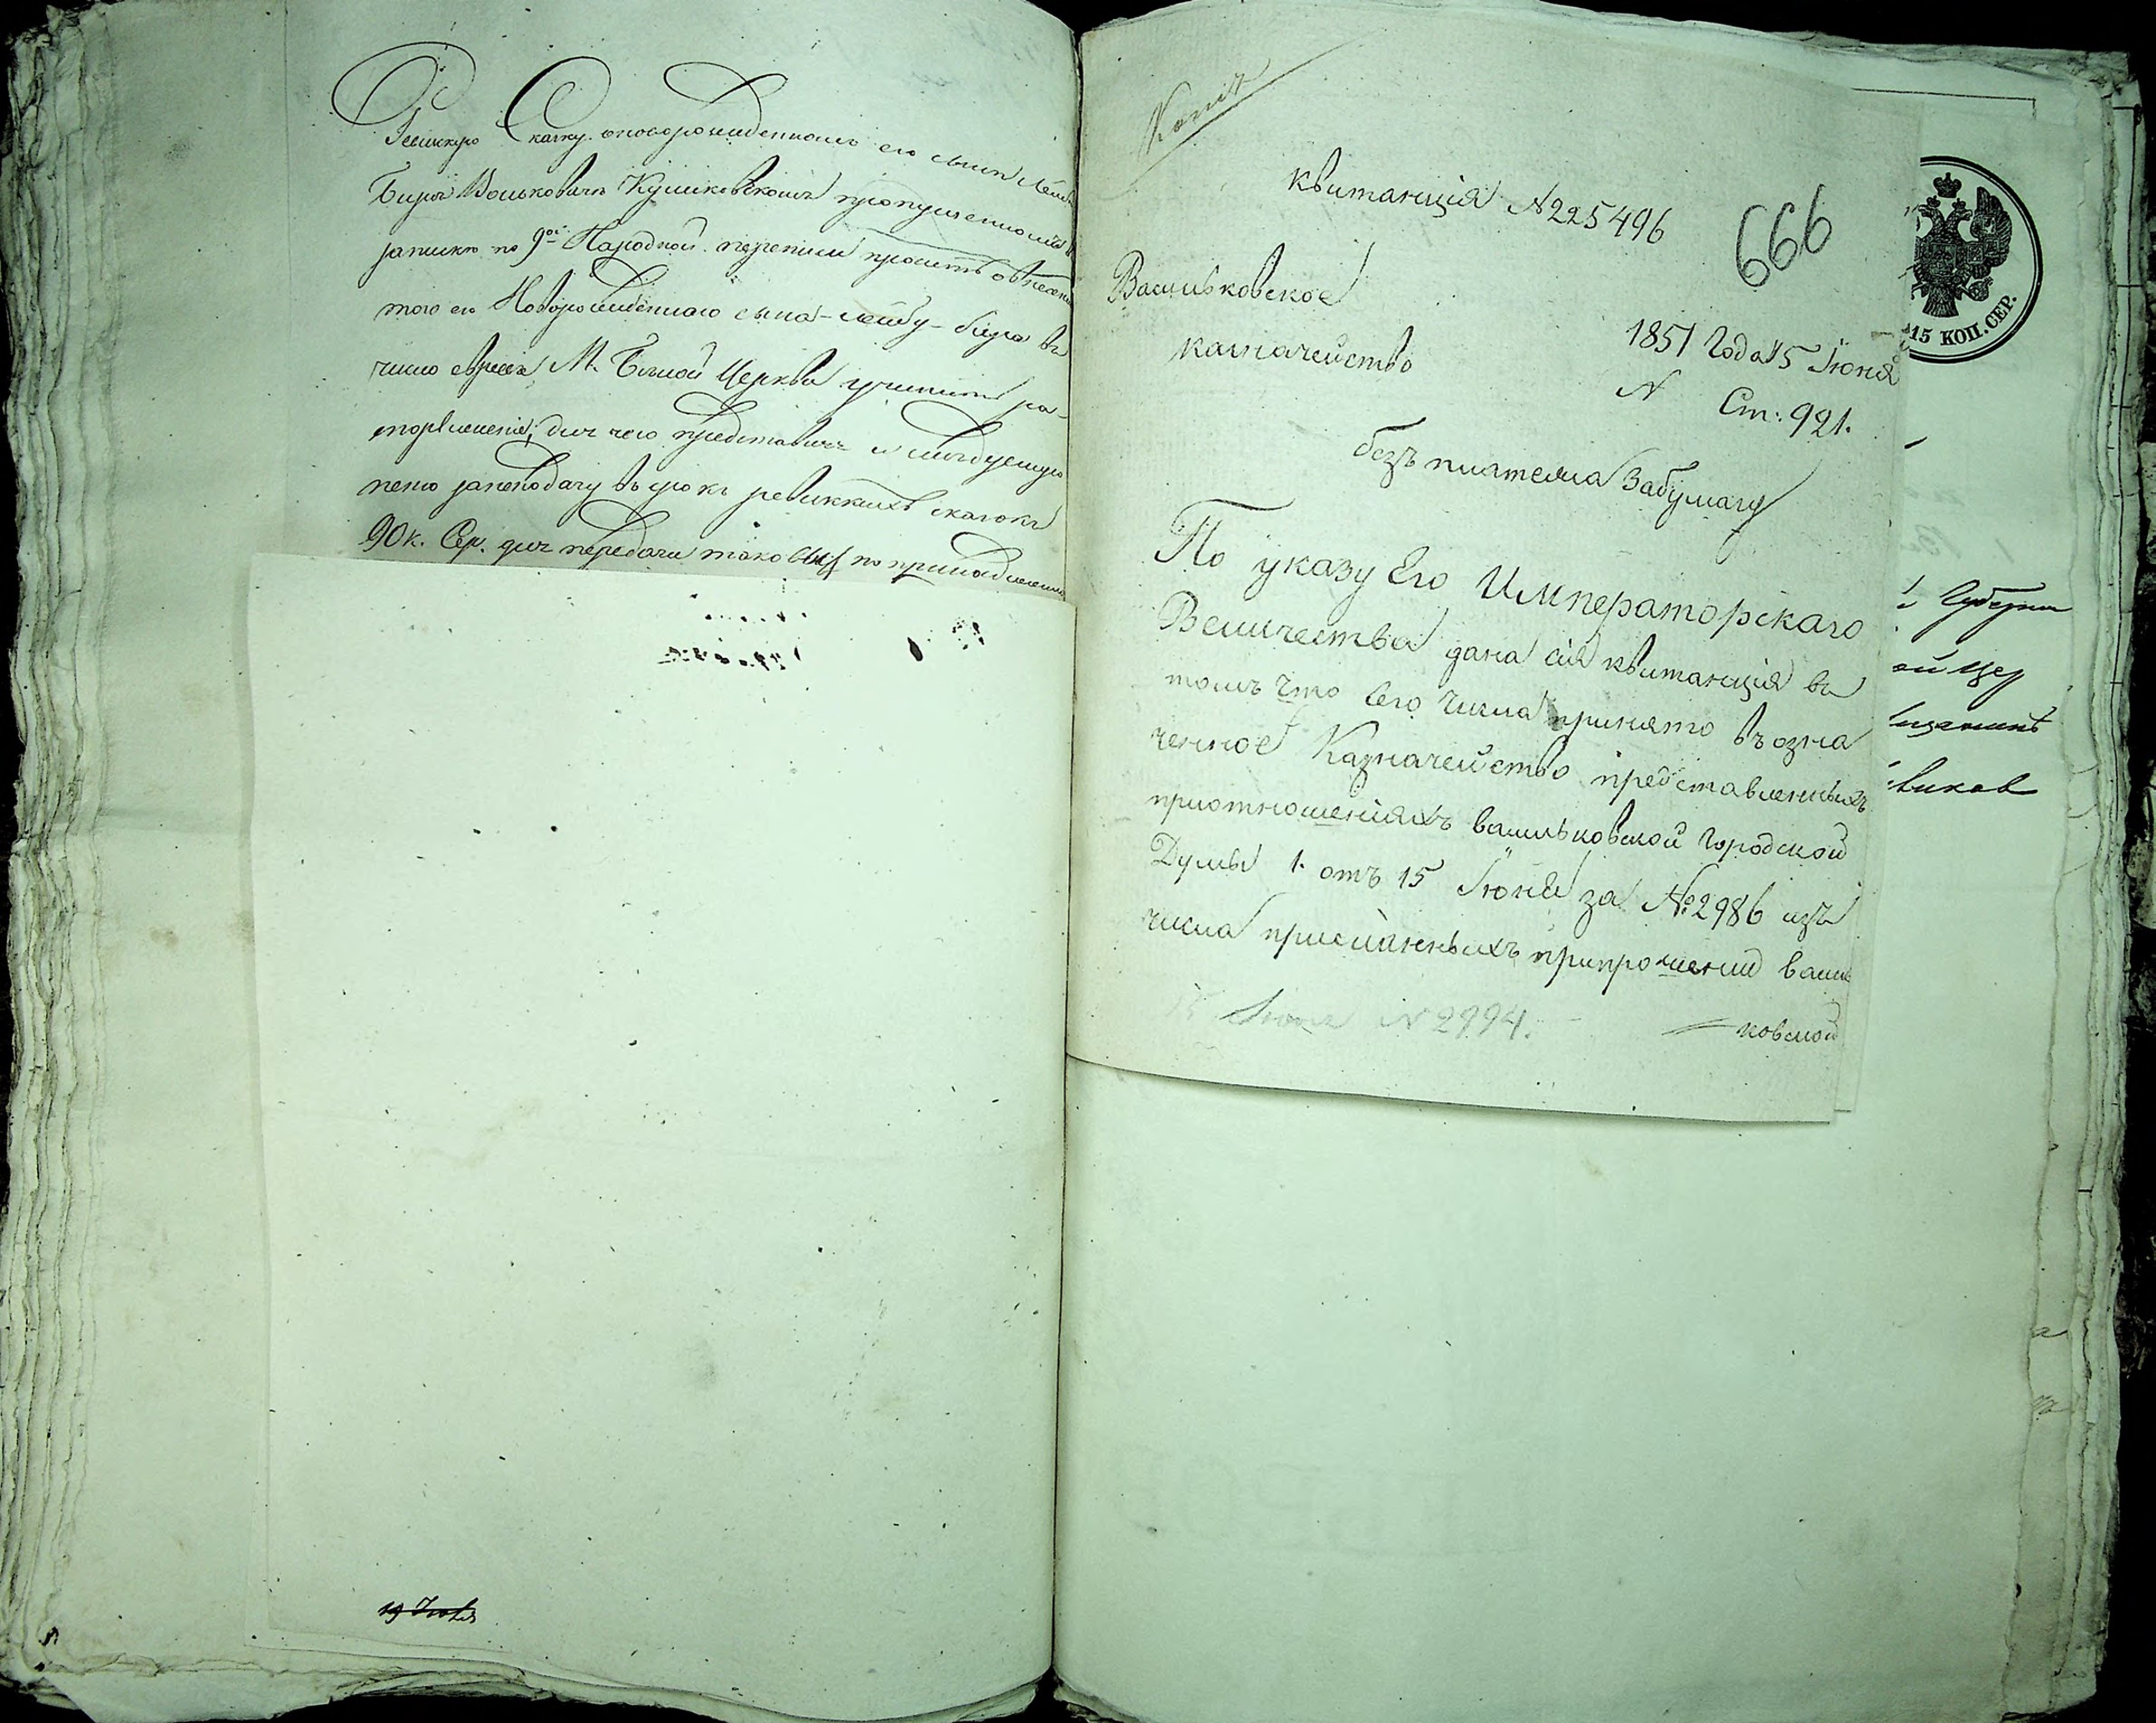 Ревизкую Сказку о новорожденномъ его сыне Лейбе
Бире Вольковиче Кушковскомъ пропущенномъ въ
записки по 9ой Народной переписи проситъ о внесении
того его Новорожденного сына-Лейбу-Бира въ
число евреевъ М. Белой Церкви учинить ра-
споряжение; для чего представилъ и следующую
пеню за неподачу въ срокъ ревизкихъ сказокъ
90 к. Сер. для передачи таковыхъ по принадлежно
19 Июня
Копія
Квитанція №225496
666
Васильковское
казначейство
1851 Года 15 Іюня
№ Ст: 921.
безъ платежа за бумагу
По указу Его Императорскаго
Величества дана сія квитанція въ
томъ что сего числа принято въ озна
ченное Казначейство представленныхъ
при отношеніяхъ васильковской Городской
Думы 1. отъ 15 Іюня за №2986 изъ
числа присланныхъ при прошении василь
ковской
15 Июня №2994.
15 КОП. СЕР.
Губернии
ой Цер